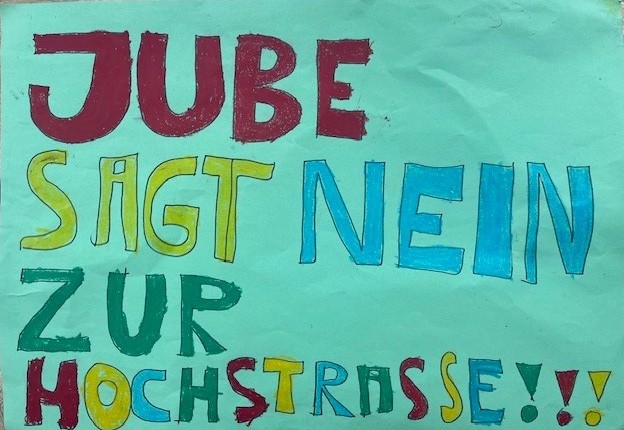 JUBE
SAGT NEIN
ZUR
HOCHSTRASSE!!!